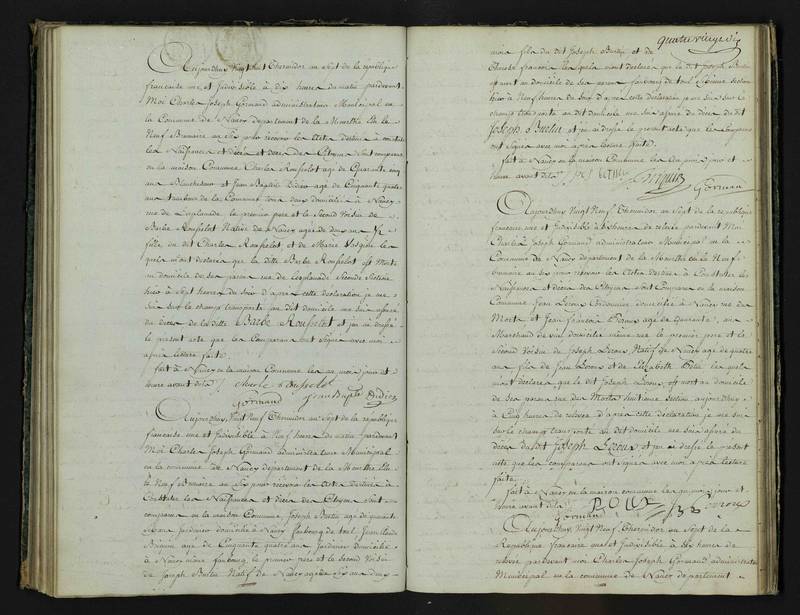 Aujourdhuy Vingt huit Thermidor an Sept de la republique
francaise une et Indivisible à dix heures du matin pardevant
Moi Charles Joseph Gormand administrateur Municipal en
la Commune de Nancy departement de la Meurthe Elu le
Neuf Brumaire an Six pour recevoir les Actes destinés à constater
les Naissances et décès des Citoyens Sont comparus
en la maison Commune Charles Rousselot age de Quarante cinq
ans et Jean Baptiste Didier age de Cinquante quatre
ans tambour de la Commune tous deux domiciliés à Nancy
rue de Lesplanade le premier pere et le Second Voisin de
Barbe Rousselot Native de Nancy agée de deux ans
fille du dit Charles Rousselot et de Marie les
quels m'ont declarés que la ditte Barbe Rousselot est Morte
au domicile de son parent rue de Lesplanade Seconde Section
hier à Sept heures du Soir d'après cette declaration je me
Suis sur le champ transporté au dit domicile me suis assuré
du décès de la ditte Barbe Rousselot et j'en ai dressé
le present acte que les Comparans ont Signés avec moi
après lecture faite
fait à Nancy en la maison Commune les an mois jour et
heure avant dits Charle Rousselot
Gormand Jean Baptte Didier
Aujourdhuy Vingt Neuf Thermidor an Sept de la république
francaise une et Indivisible à Neuf heures du matin pardevant
Moi Charles Joseph Gormand administrateur Municipal
en la commune de Nancy departement de la Meurthe Elu
le Neuf Brumaire an Six pour recevoir les Actes destinés à
Constater les Naissances et décès des Citoyens Sont
comparus en la maison Commune Joseph Burtin age de quarante
ans Jardinier domicilié à Nancy faubourg de toul Jean Claude
age de Cinquante quatre ans Jardinier domicilié
à Nancy même faubourg le premier pere et le Second Voisin
de Joseph Burtin Natif de Nancy agé de Six ans deux
quatre vingt dix
mois fils du dit Joseph Burtin et de
Therese francois lesquels m'ont declarés que le dit Joseph Burtin
est mort au domicile de son parent faubourg de toul Sixieme Section
hier à Neuf heures du Soir d'après cette déclaration je me suis sur le
champ transporté au dit domicile me suis assuré du décès du dit
Joseph Burtin et j'en ai dressé le present acte que les Comparans
ont Signés avec moi après lecture faite
fait à Nancy en la maison Commune les an mois jour et
heure avant dits
Gormand
Aujourdhuy Vingt Neuf Thermidor an Sept de la republique
francaise une et Indivisible à heures de relevée pardevant Moi
Charles Joseph Gormand administrateur Municipal en la
Commune de Nancy departement de la Meurthe Elu le Neuf
brumaire an six pour recevoir les Actes destinés à Constater les
Naissances et décès des Citoyens Sont Comparus en la maison
Commune Jean Leroux Cordonnier domicilié à Nancy rue du
Morts et Jean francois age de Quarante ans
Marchand de vin domicilié même rue le premier pere et le
Second Voisin de Joseph Leroux Natif de Nancy agé de quatre
ans fils de Jean Leroux et de Elizabeth les quels
m'ont declarés que le dit Joseph Leroux est mort au domicile
de son parent rue des Morts huitieme Section aujourdhuy
à Cinq heures de relevée d'après cette declaration je me suis
sur le champ transporté au dit domicile me suis assuré du
décès du dit Joseph Leroux et j'en ai dressé le present
acte que les comparans ont signés avec moi après lecture
faite
fait à Nancy en la maison commune les an mois jour et
heure avant dits
Gormand
Aujourdhuy Vingt Neuf Thermidor an Sept de la
Republique francaise une et Indivisible à Six heures de
relevée pardevant moi Charles Joseph Gormand administrateur
Municipal en la commune de Nancy departement